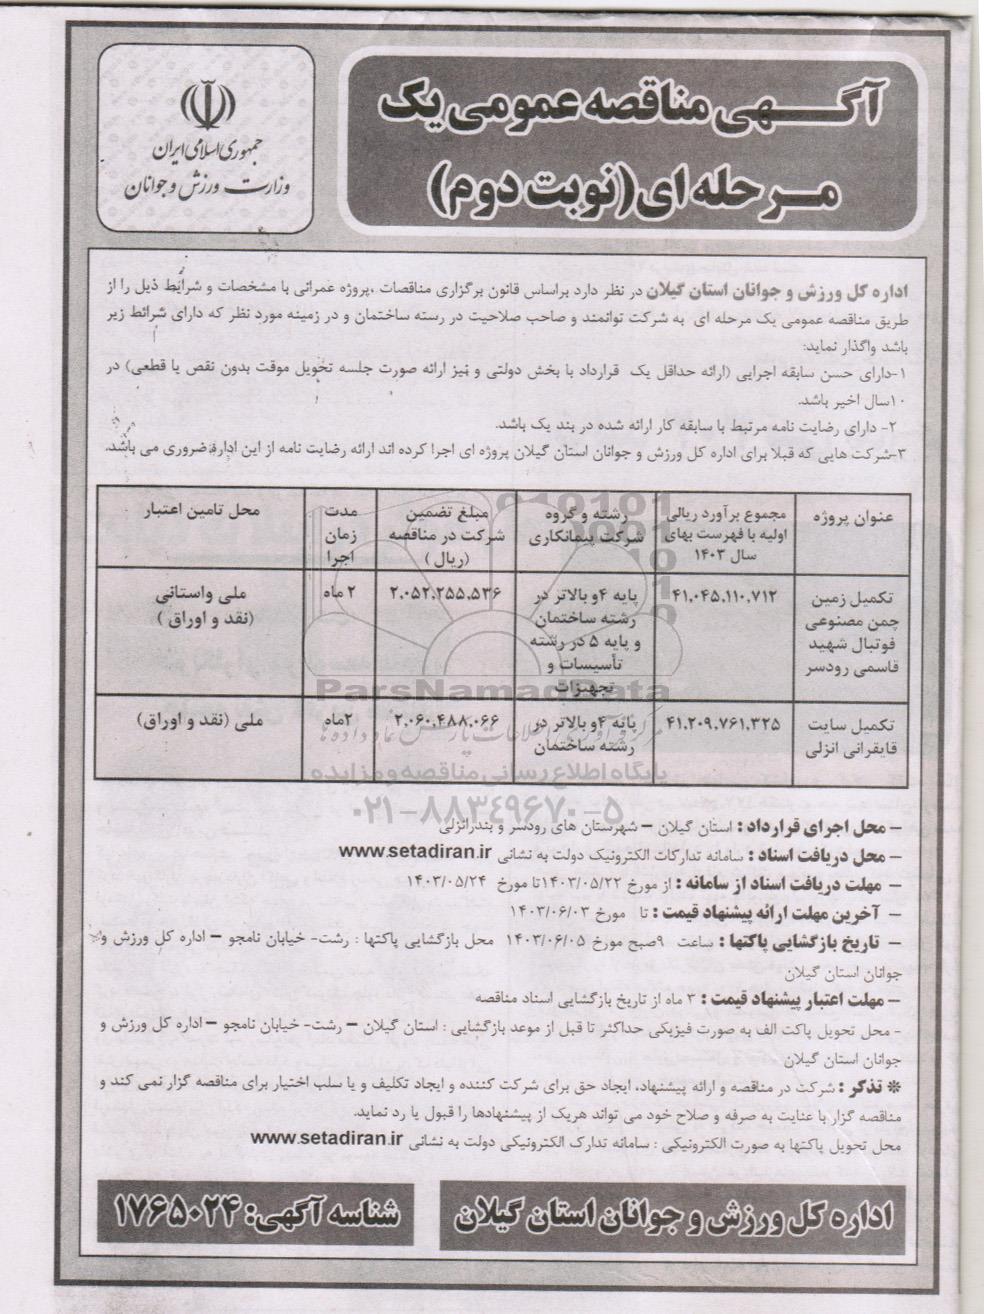 جمهوری اسلامی ایران
وزارت ورزش و جوانان
آگهی مناقصه عمومی یک
مرحله ای (نوبت دوم)
اداره کل ورزش و جوانان استان گیلان در نظر دارد براساس قانون برگزاری مناقصات ،پروژه عمرانی با مشخصات و شرایط ذیل را از
طریق مناقصه عمومی یک مرحله ای به شرکت توانمند و صاحب صلاحیت در رسته ساختمان و در زمینه مورد نظر که دارای شرائط زیر
باشد واگذار نماید:
۱-دارای حسن سابقه اجرایی (ارائه حداقل یک قرارداد با بخش دولتی و نیز ارائه صورت جلسه تحویل موقت بدون نقص یا قطعی) در
۱۰سال اخیر باشد.
۲- دارای رضایت نامه مرتبط با سابقه کار ارائه شده در بند یک باشد.
۳-شرکت هایی که قبلا برای اداره کل ورزش و جوانان استان گیلان پروژه ای اجرا کرده اند ارائه رضایت نامه از این اداره ضروری می باشد.
عنوان پروژه
مجموع برآورد ریالی
اولیه با فهرست بهای
سال ۱۴۰۳
رشته و گروه
شرکت پیمانکاری
مبلغ تضمین
شرکت در مناقصه
(ریال)
مدت
زمان
اجرا
محل تامین اعتبار
تکمیل زمین
چمن مصنوعی
فوتبال شهید
قاسمی رودسر
۴۱.۰۴۵.۱۱۰.۷۱۲
پایه ۴و بالاتر در
رشته ساختمان
و پایه ۵ در رشته
تأسیسات و
تجهیزات
۲.۰۵۲.۲۵۵.۵۳۶
۲ ماه
ملی واستانی
(نقد و اوراق )
تکمیل سایت
قایقرانی انزلی
۴۱.۲۰۹.۷۶۱.۳۲۵
پایه ۴و بالاتر در
رشته ساختمان
۲.۰۶۰.۴۸۸.۰۶۶
۲ماه
ملی (نقد و اوراق)
ParsNamadData
پایگاه اطلاع رسانی مناقصه و مزایده
۰۲۱-۸۸۳۴۹۶۷۰-۵
– محل اجرای قرارداد : استان گیلان – شهرستان های رودسر و بندرانزلی
– محل دریافت اسناد : سامانه تدارکات الکترونیک دولت به نشانی www.setadiran.ir
– مهلت دریافت اسناد از سامانه : از مورخ ۱۴۰۳/۰۵/۲۲تا مورخ ۱۴۰۳/۰۵/۲۴
– آخرین مهلت ارائه پیشنهاد قیمت : تا مورخ ۱۴۰۳/۰۶/۰۳
– تاریخ بازگشایی پاکتها : ساعت ۹صبح مورخ ۱۴۰۳/۰۶/۰۵ محل بازگشایی پاکتها : رشت- خیابان نامجو – اداره کل ورزش و
جوانان استان گیلان
– مهلت اعتبار پیشنهاد قیمت : ۳ ماه از تاریخ بازگشایی اسناد مناقصه
- محل تحویل پاکت الف به صورت فیزیکی حداکثر تا قبل از موعد بازگشایی : استان گیلان – رشت- خیابان نامجو – اداره کل ورزش و
جوانان استان گیلان
❊ تذکر : شرکت در مناقصه و ارائه پیشنهاد، ایجاد حق برای شرکت کننده و ایجاد تکلیف و یا سلب اختیار برای مناقصه گزار نمی کند و
مناقصه گزار با عنایت به صرفه و صلاح خود می تواند هریک از پیشنهادها را قبول یا رد نماید.
محل تحویل پاکتها به صورت الکترونیکی : سامانه تدارک الکترونیکی دولت به نشانی www.setadiran.ir
اداره کل ورزش و جوانان استان گیلان
شناسه آگهی: ۱۷۶۵۰۲۴